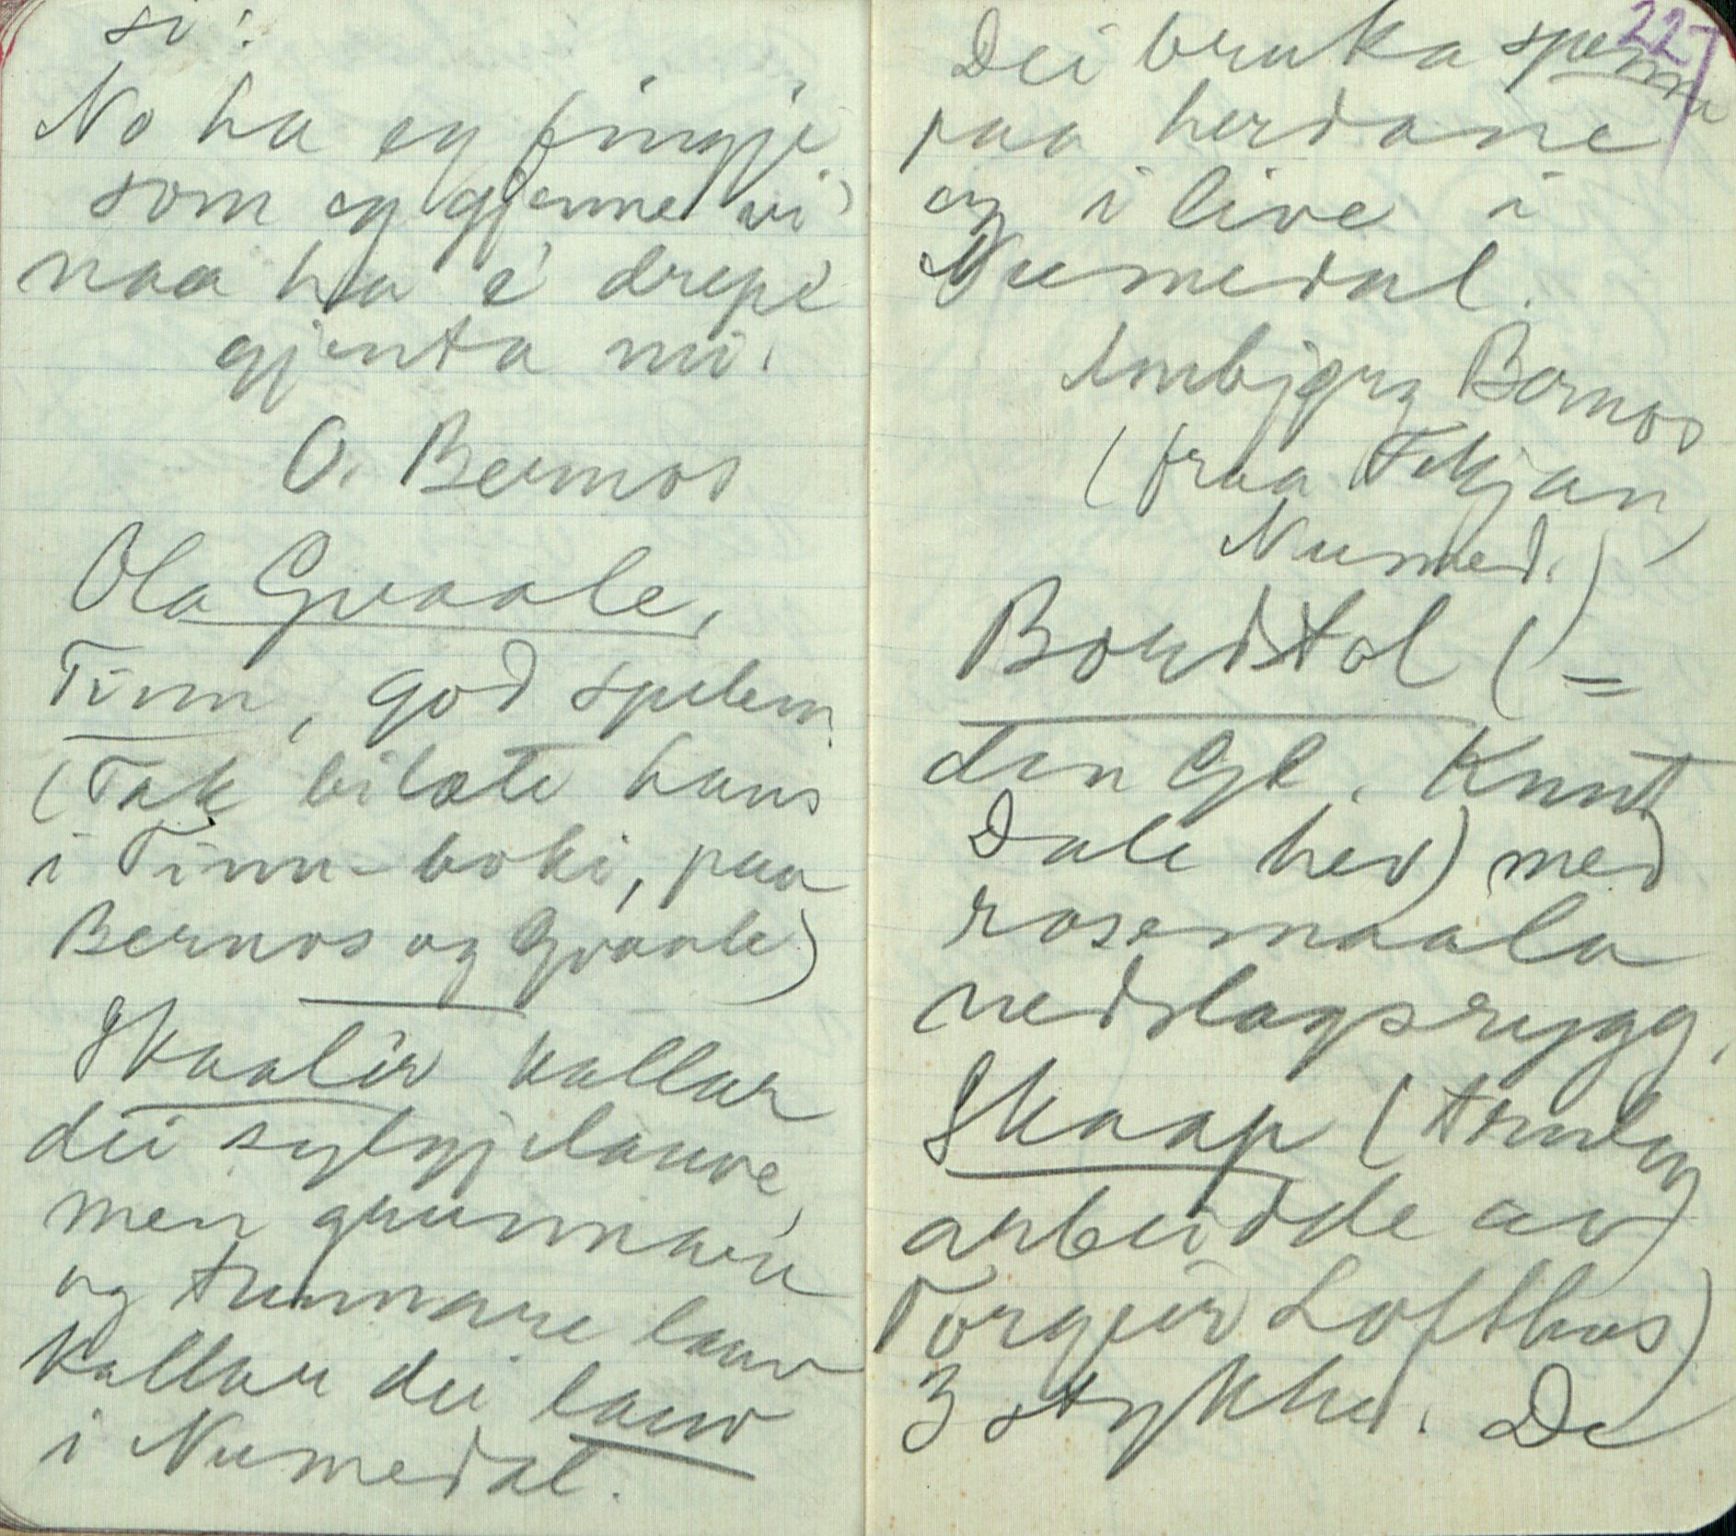 si:
No ha eg fingje
som eg gjenne vi
naa ha e drepe
gjenta mi.
O. Bernos
Ola Gvaale,
Tinn, god spelem.
(Tak bilæte hans
i Tinn-boki, paa
Bernos og Gvaale)
Skaalir kallar
dei sylgjelauve,
men grunnare
og tunnare lauv
kallar dei lauv
i Numedal.
227
Dei bruka spenna
paa herdane
og i live i
Numedal.
Ambjørg Bernos
(fraa
Numed.)
Bordstol (=
den Gl. Knut
Dale hev) med
rosemaala
nedslagsrygg,
Skaap (
arbeidde av
Torgeir Lofthus)
3 stykker. De